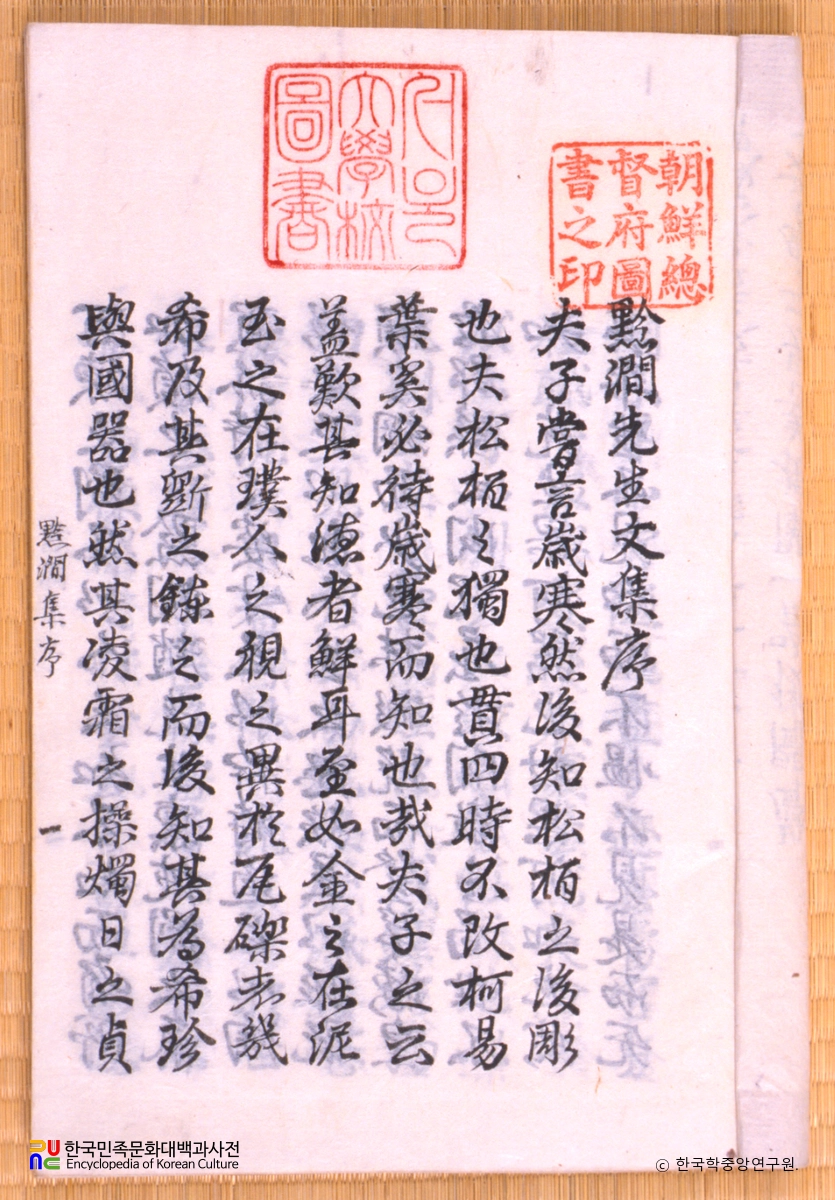 서울
大學校
圖書
朝鮮總
督府圖
書之印
黔澗先生文集序
夫子嘗言歲寒然後知松栢之後彫
也夫松栢之獨也貫四時不改柯易
葉奚必待歲寒而知也哉夫子之云
盖歎其知德者鮮耳至如金之在泥
玉之在璞人之視之異於瓦礫者幾
希及其斲之鍊之而後知其爲希珍
與國器也然其凌霜之操燭日之貞
黔澗集序
一
한국민족문화대백과사전
Encyclopedia of Korean Culture
© 한국학중앙연구원.